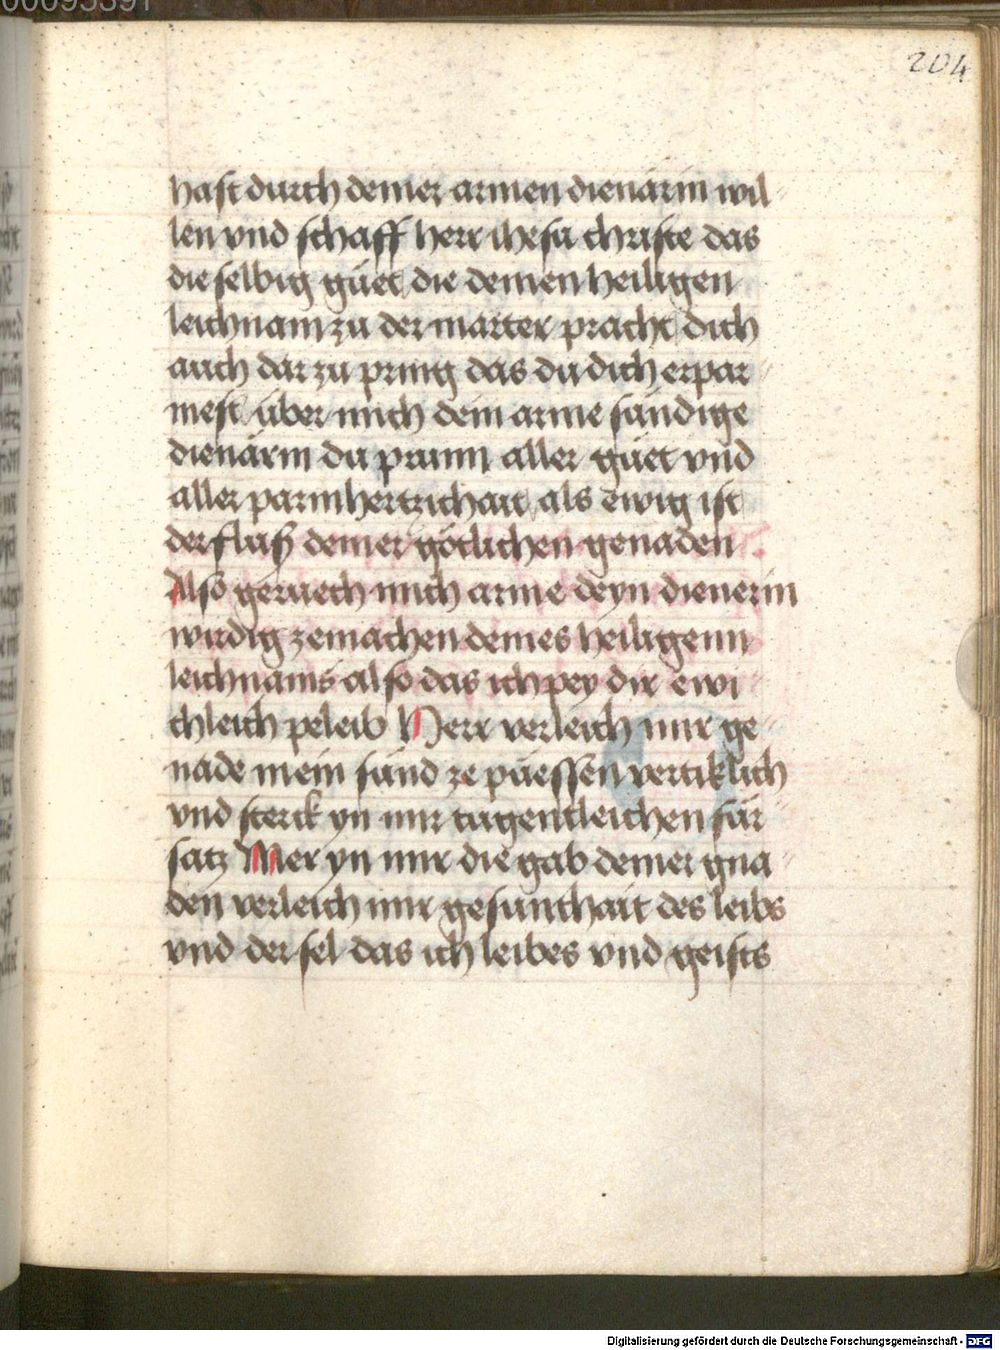 204
hast durch deiner armen dienarin wil
len vnd schaff herr ihesu christe das
die selbig güet die deinen heiligen
leichnam zu der marter pracht dich
auch dar zu pring das du dich erpar
mest über mich dein arme sündige
dienärin du prunn aller güet vnd
aller parmhertzichait als ewig ist
der fluß deiner götlichen genaden
Also geruech mich arme deyn dienerin
wirdig zemachen deines heiligenn
leichnams also das ich pey dir ewi
chleich peleib Herr verleich mir ge
nade mein sünd ze püessen vertiklich
vnd sterck yn mir tugentleichen für
satz Mer yn mir die gab deiner gna
den verleich mir gesunthait des leibs
vnd der sel das ich leibes vnd geists
Digitalisierung gefördert durch die Deutsche Forschungsgemeinschaft - DFG